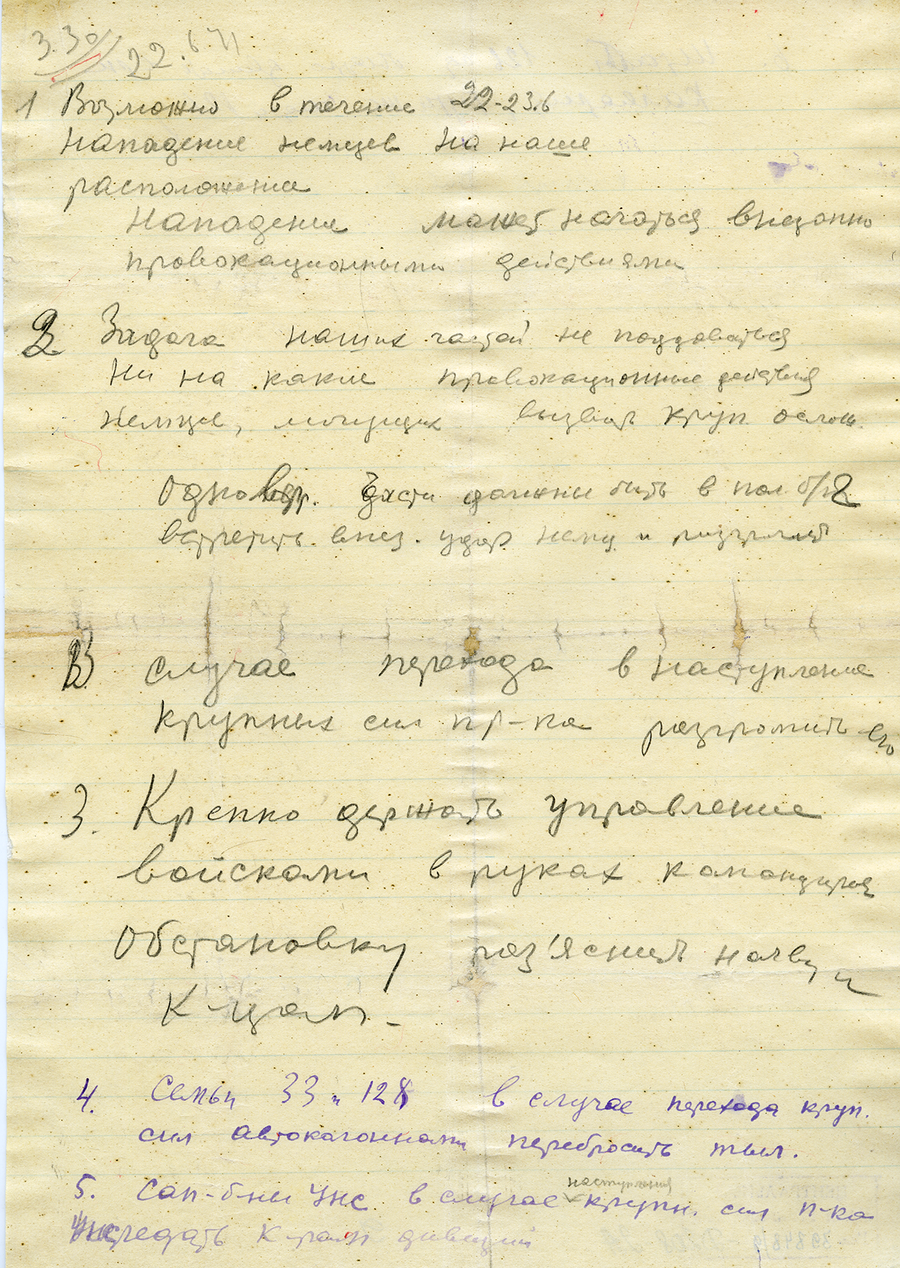 3.30 22.6.41
1 Возможно в течение 22-23.6
Нападение немцев на наше
расположение
Нападение может начаться внезапно
провокационными действиями
2 Задача наших частей не поддоваться
Ни на какие провокационные действия
немцев, могущих вызвать круп. ослож.
Одновр. Части должны быть в пол. б/г
встретить внез. удар немц и разгромить
В случае перехода в наступление
крупных сил пр-ка разгромить его
3. Крепко держать управление
войсками в руках командиров
Обстановку раз'яснить нач и
к-цам.
4. Семьи 33 и 128 в случае перехода круп.
сил автоколоннами перебросить тыл.
наступления
5. Сап-б-ны УНС в случае крупн. сил п-ка
передать к-рам дивизий